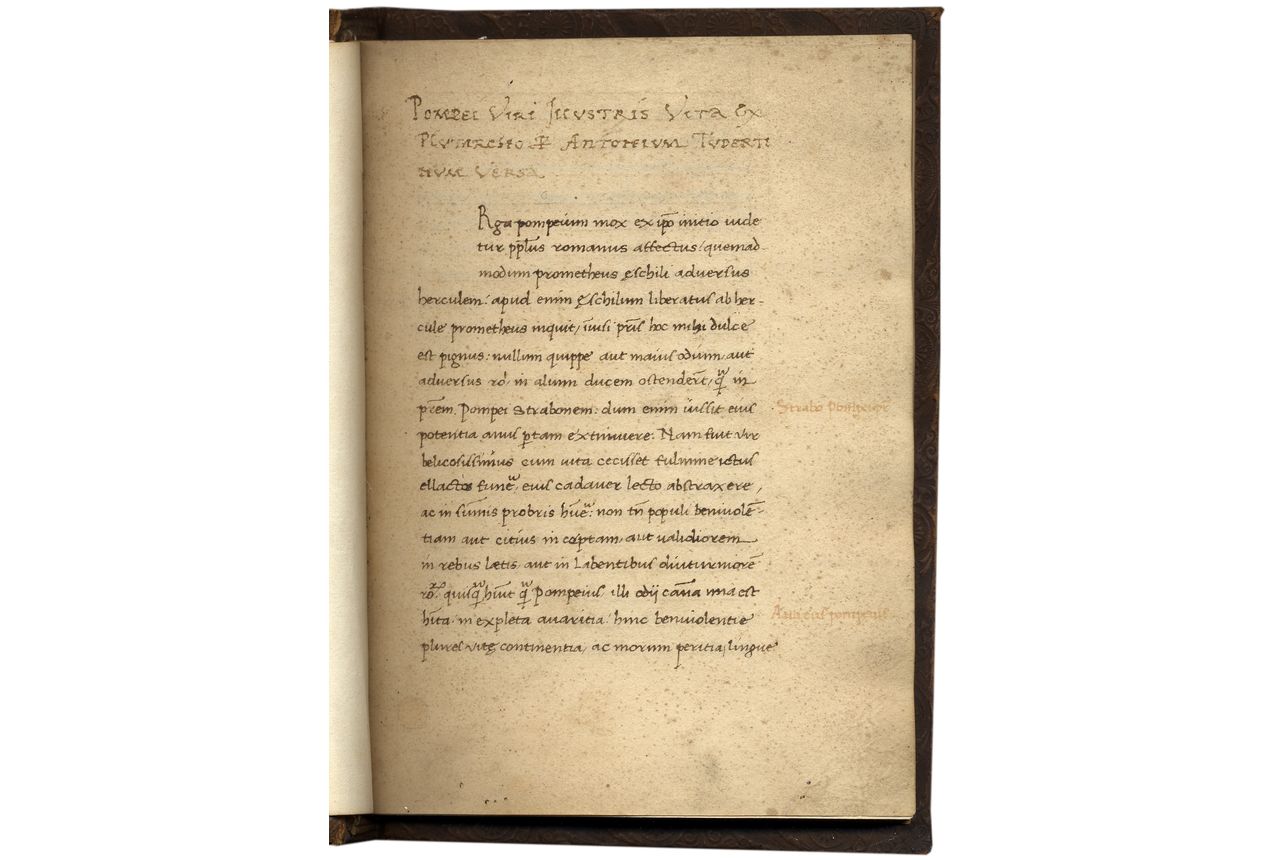 POMPEI VIRI ILLUSTRIS VITA EX
PLUTARCHO P̱ ANTONIUM TUDERTI
NUM VERSA
Rga pompeium mox ex ip̄o initio uide
tur pp̄lus romanus affectus: quemad
modum prometheus ęschili aduersus
herculem: apud enim ęschilum liberatus ab her-
cule prometheus inquit, īuisi pr̄is hoc mihi dulce
est pignus: nullum quippe aut maius odium aut
aduersus ro. in alium ducem ostender̄t, in
pr̄em Pompei Strabonem: dum enim iussit eius
Strabo Pompeius
potentia ꝑtam extimuere: Nam fuit vir
belicosissimus cum vita cecisset fulmine ictus
eius cadauer lecto abstraxere,
ac in sūmis probris non tn̄ populi beniuolē-
tiam aut citius in cœptam, aut ualidiorem
in rebus lætis, aut in labentibus diuturniorē
Pompeius, illi odij cauā una est
hīta in expleta auaritia: hinc beniuolentie
Auarus pompeius
plures vitę continentia, ac morum peritia, lingue